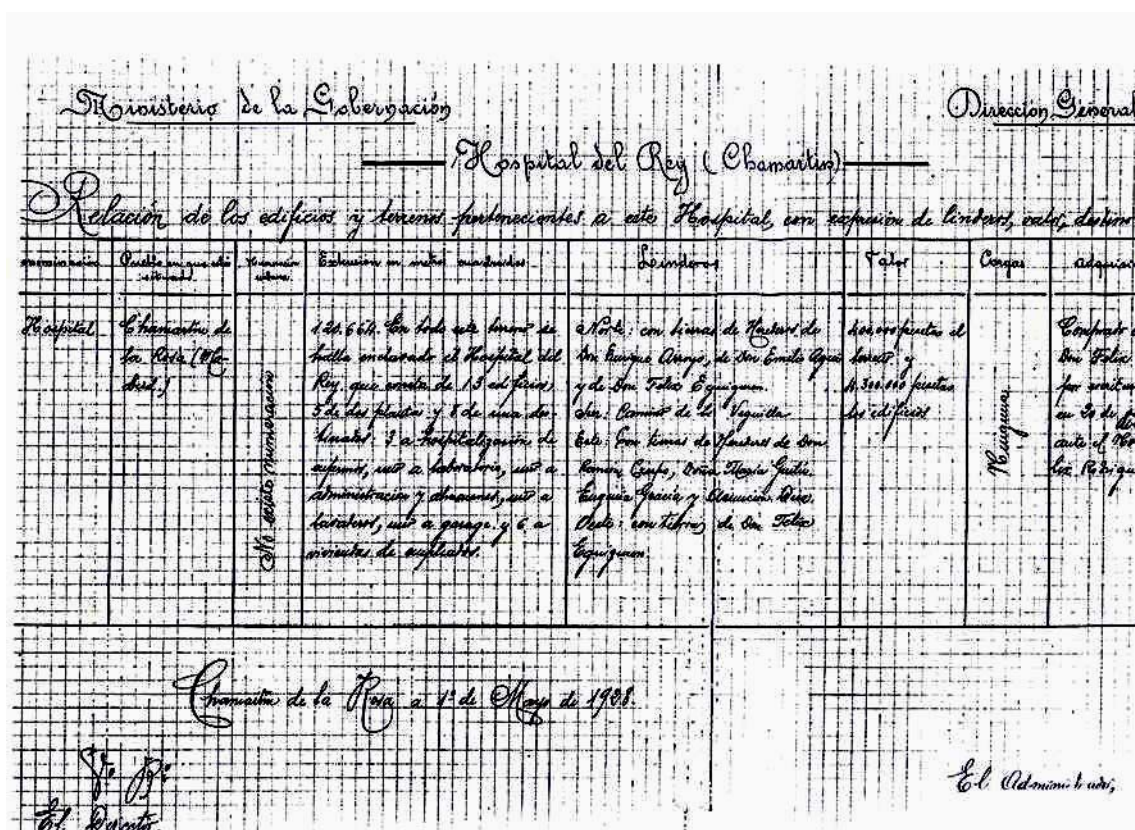 Ministerio de la Gobernación
Dirección General
Hospital del Rey (Chamartin)
Relación de los edificios y terrenos pertenecientes a este Hospital, con expresión de linderos, valor, destino
Pueblo en que está situado
Extensión en metros cuadrados
Linderos
Valor
Cargas
adquisi
Hospital
Chamartin de
la Rosa (Ma-
drid)
No existe numeración
120.664. En todo este terreno se
halla enclavado el Hospital del
Rey, que consta de 13 edificios,
5 de dos plantas y 8 de una des-
tinados: 3 a hospitalización de
enfermos, uno a laboratorio, uno a
administración y almacenes, uno a
lavaderos, uno a garage y 6 a
viviendas de empleados.
Norte: con tierras de Herederos de
Don Enrique Arroyo, de Don Emilio
y de Don Felix Eguiguren.
Sur: Camino de la Veguilla
Este: Con tierras de Herederos de Don
Ramon Crespo, Doña Maria
Gracia y Asunción
Oeste: con tierras de Don Felix
Eguiguren
400.000 pesetas el
terreno y
4.300.000 pesetas
los edificios
Ninguna
Comprado
Don Felix
por escritura
en 20 de
ante el No
Chamartin de la Rosa a 1º de Mayo de 1928.
Vº Bº
El Director
El Administrador,